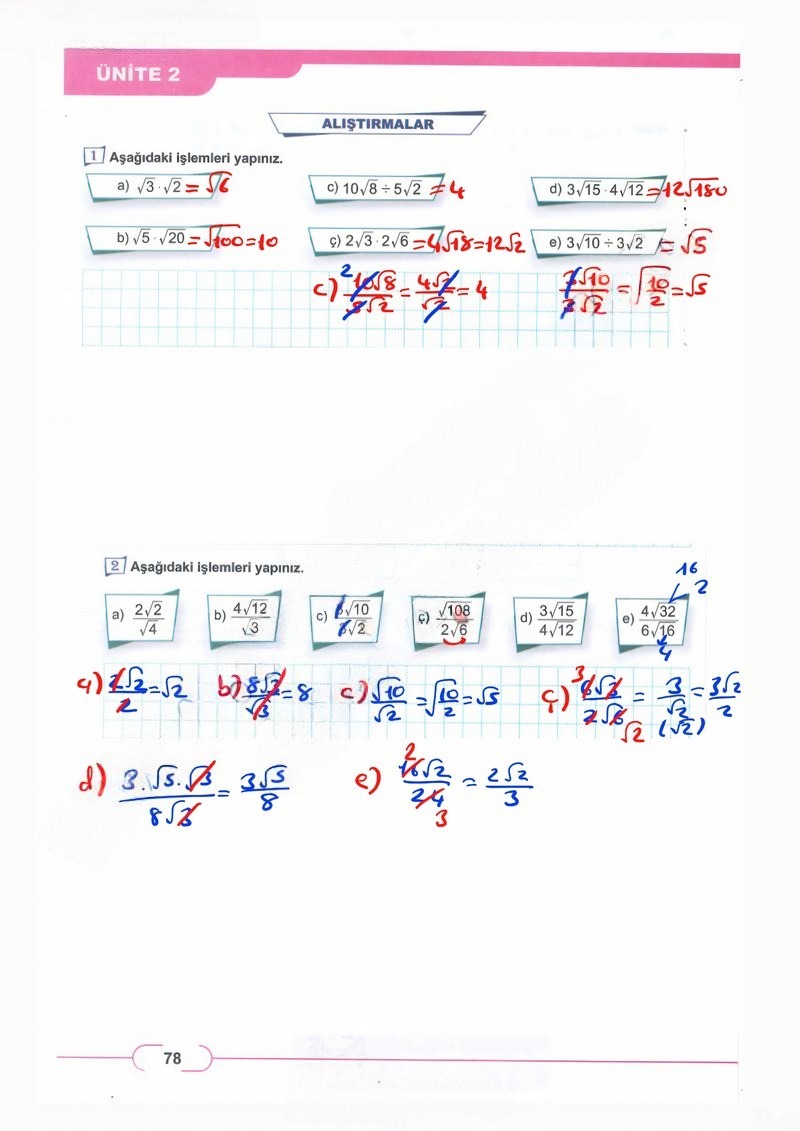 ÜNİTE 2
ALIŞTIRMALAR
1 Aşağıdaki işlemleri yapınız.
a) √3 · √2 = √6
c) 10√8 ÷ 5√2 = 4
d) 3√15 · 4√12 = 12√180
b) √5 · √20 = √100 = 10
ç) 2√3 · 2√6 = 4√18 = 12√2
e) 3√10 ÷ 3√2 = √5
c) 10√8 / 5√2 = 4√2 / √2 = 4
2
3√10 / 3√2 = √10/2 = √5
2 Aşağıdaki işlemleri yapınız.
16
2
a) 2√2 / √4
b) 4√12 / √3
c) √10 / √2
ç) √108 / 2√6
d) 3√15 / 4√12
e) 4√32 / 6√16
4
a) 2√2 / 2 = √2
b) 8√3 / √3 = 8
c) √10 / √2 = √10/2 = √5
ç) 6√3 / 2√6 = 3 / √2 = 3√2 / 2
3
√2
(√2)
d) 3.√5.√3 / 8√3 = 3√5 / 8
e) 16√2 / 24 = 2√2 / 3
2
3
78